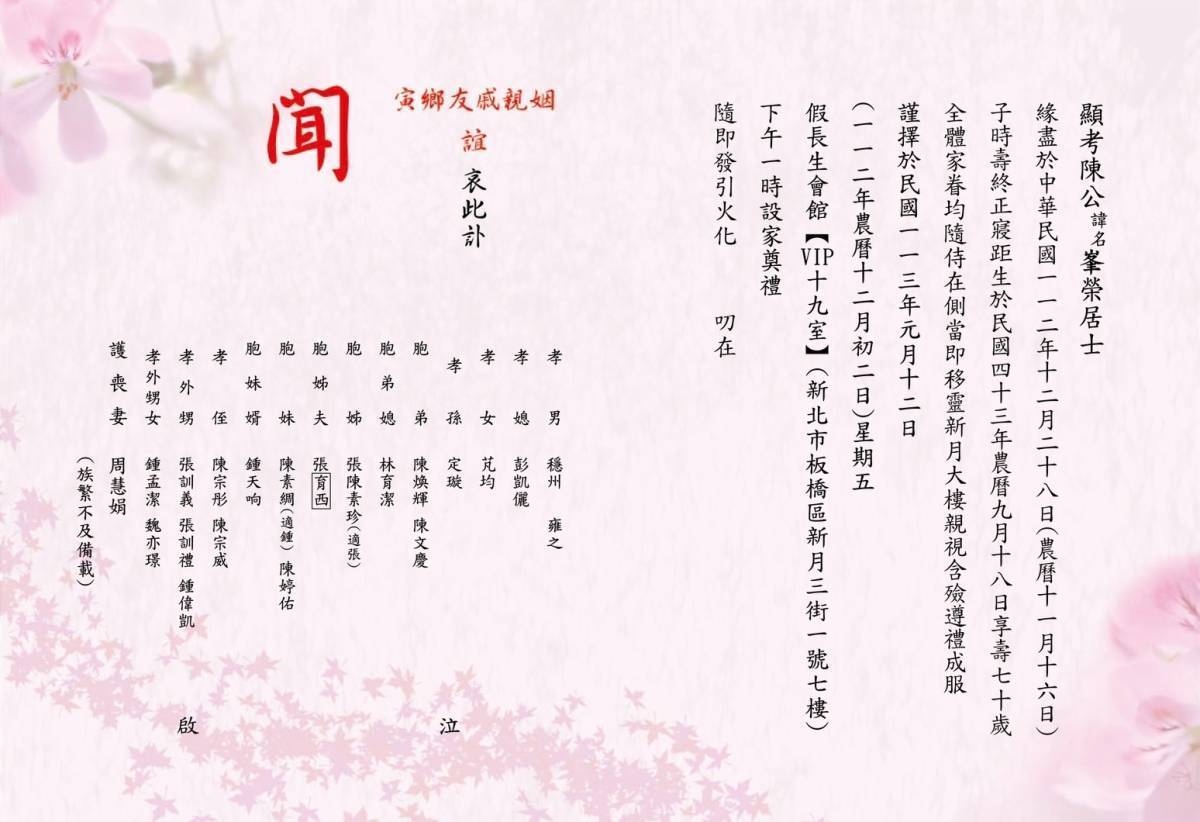 顯考陳公諱名峯榮居士
緣盡於中華民國一一二年十二月二十八日(農曆十一月十六日)
子時壽終正寢距生於民國四十三年農曆九月十八日享壽七十歲
全體家眷均隨侍在側當即移靈新月大樓親視含殮遵禮成服
謹擇於民國一一三年元月十二日
(一一二年農曆十二月初二日)星期五
假長生會館【VIP十九室】(新北市板橋區新月三街一號七樓)
下午一時設家奠禮
隨即發引火化 叨在
姻親戚友鄉寅
誼 哀此訃
聞
孝男 穩州 雍之
孝媳 彭凱儷
孝女 芃均
孝孫 定璇
胞弟 陳煥輝 陳文慶
胞弟媳 林育潔
胞姊 張陳素珍(適張)
胞姊夫 張育西
胞妹 陳素綢(適鍾) 陳婷佑
胞妹婿 鍾天响
孝侄 陳宗彤 陳宗威
孝外甥 張訓義 張訓禮 鍾偉凱
孝外甥女 鍾孟潔 魏亦璟
護喪妻 周慧娟
(族繁不及備載)
泣
啟